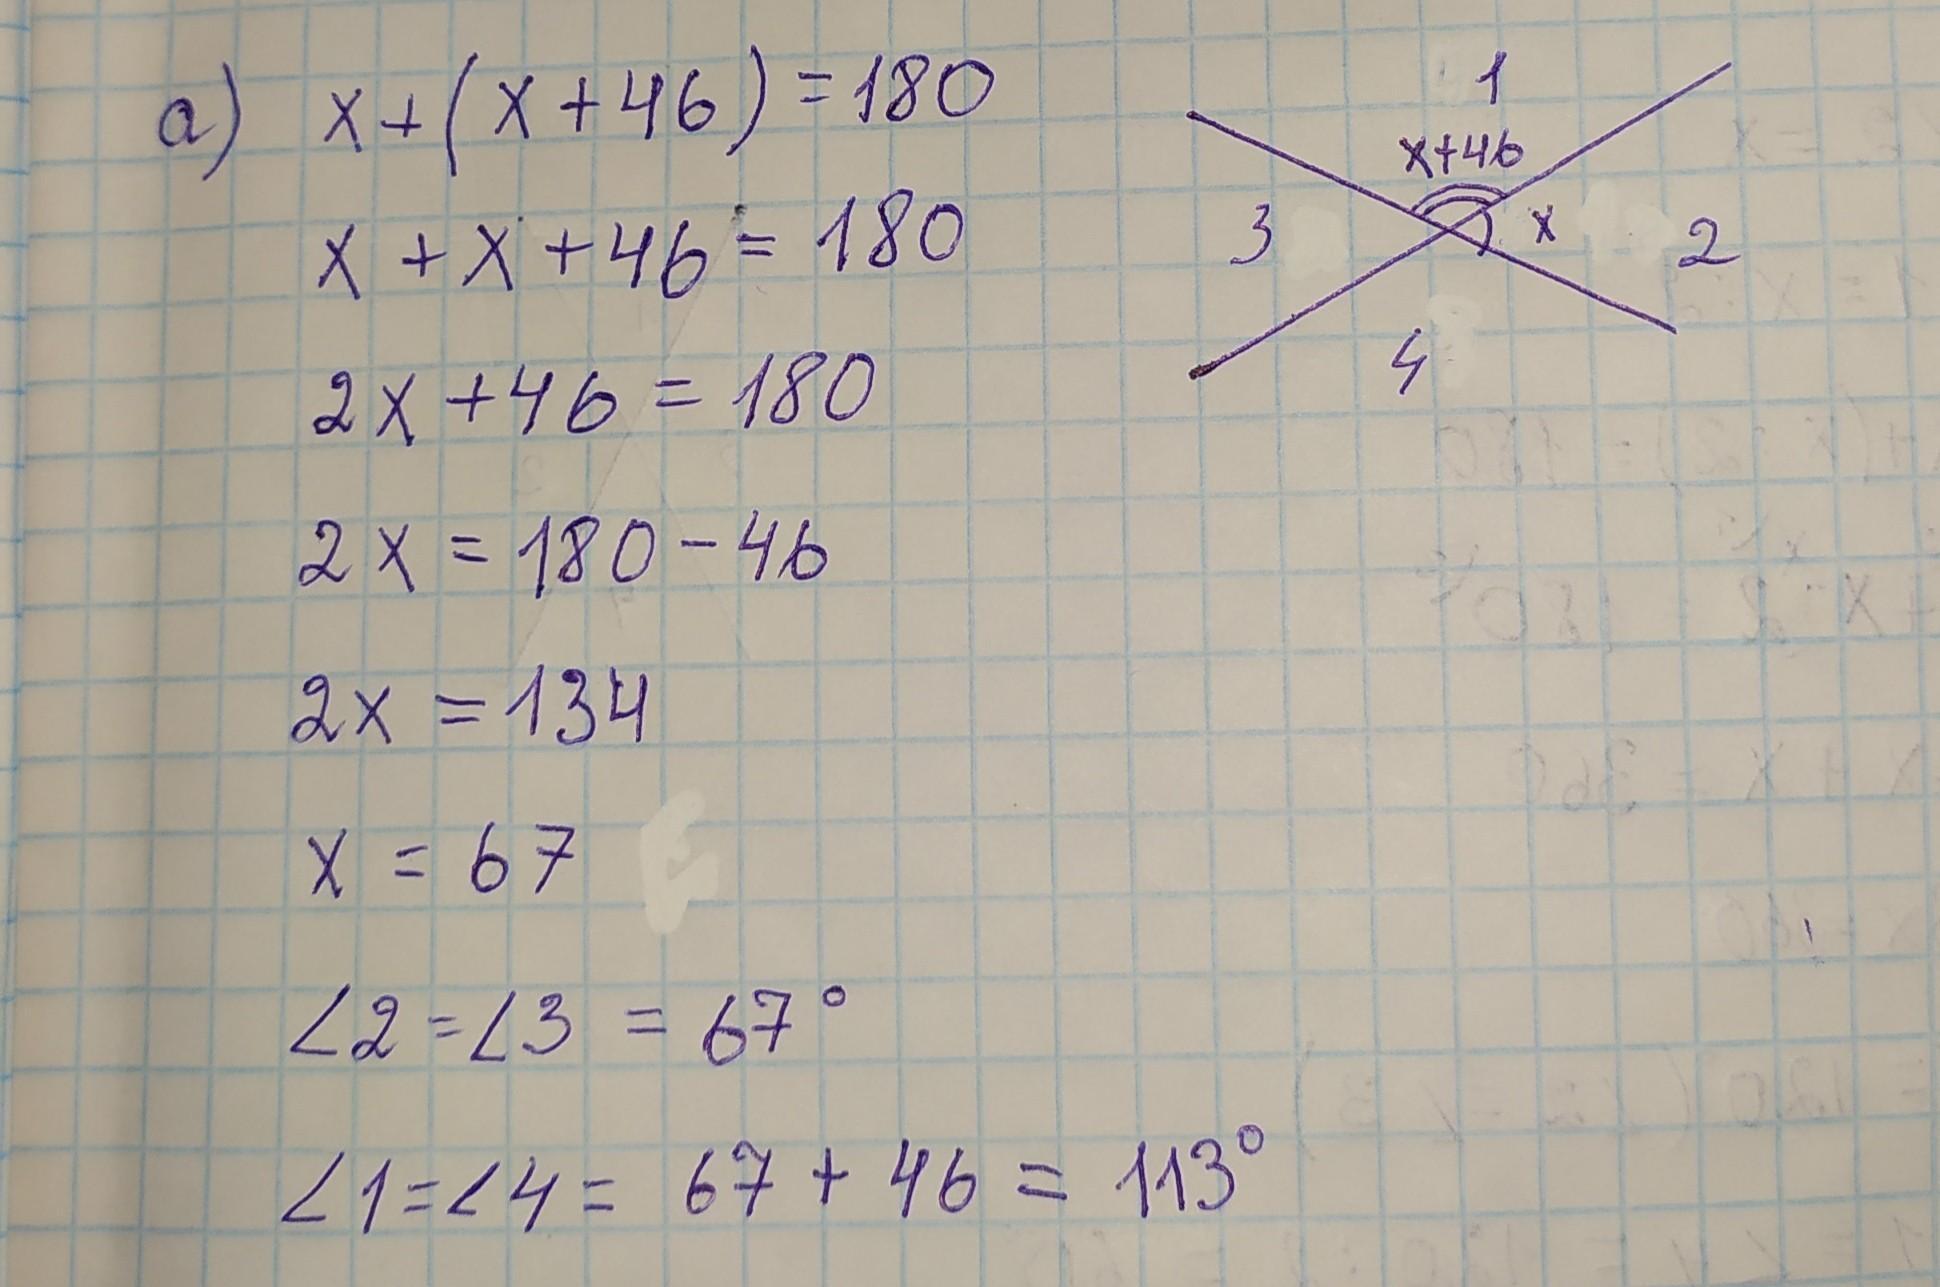 a) x+(x+46)=180
x+x+46=180
2x+46=180
2x=180-46
2x=134
x=67
∠2=∠3=67°
∠1=∠4=67+46=113°
1
x+46
3
x
2
4